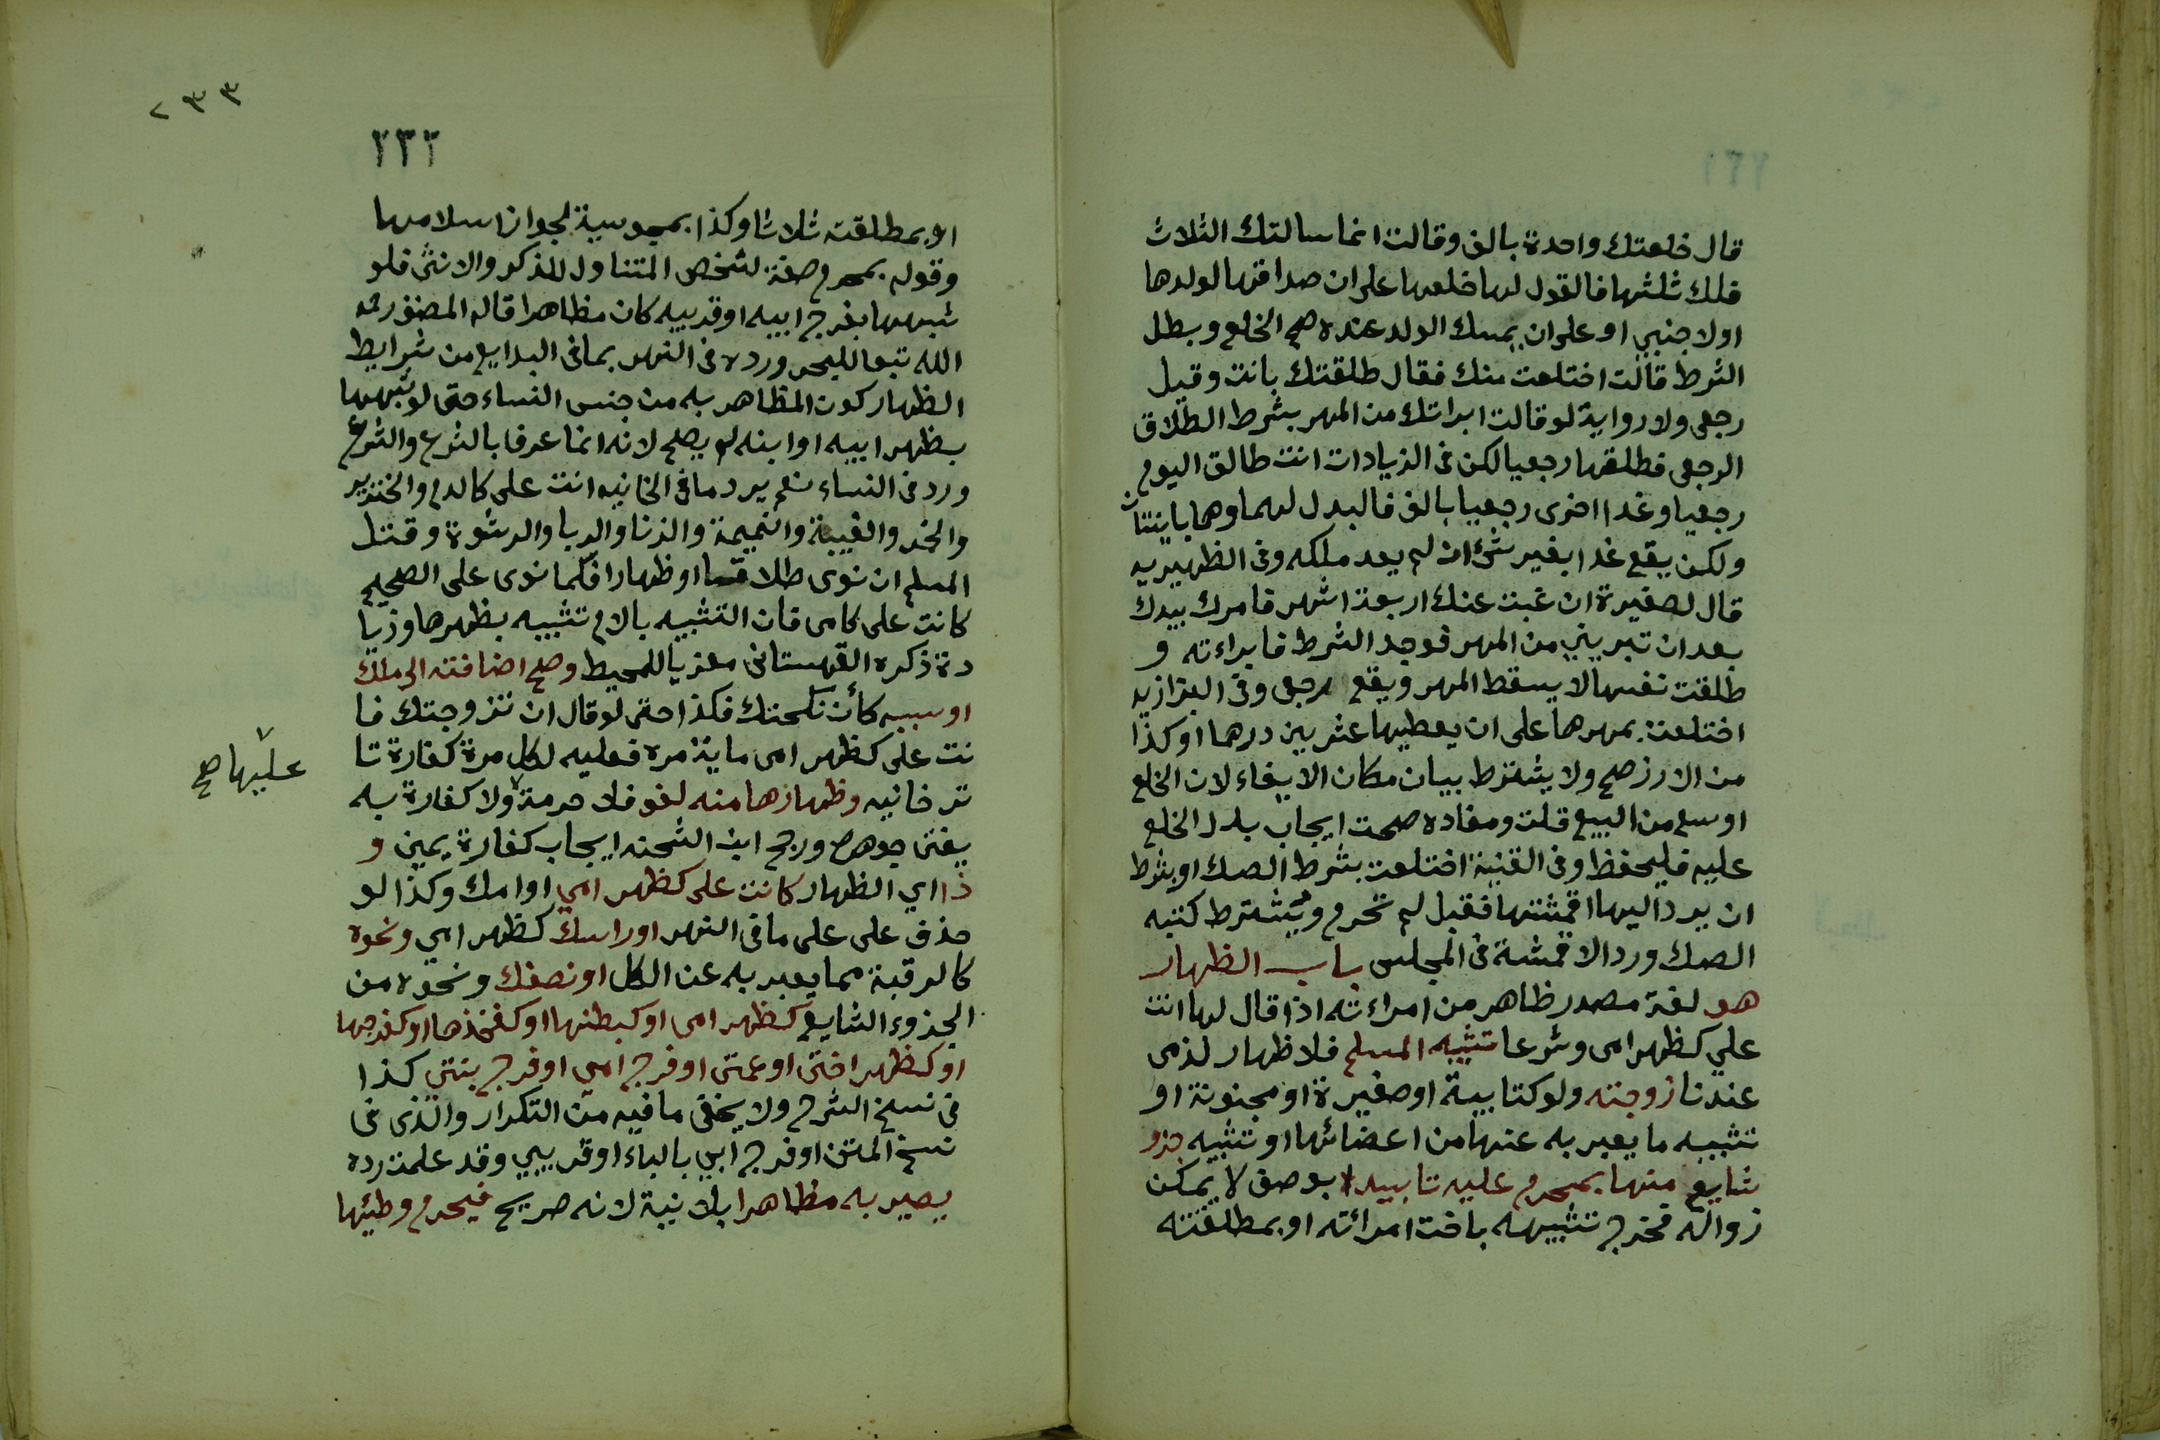 قال خلعتك واحدة بالف وقالت انما سالتك الثلاث
فلك ثلثها فالقول لها خلعها على ان صداقها لولدها
او لاجنبي او على ان يمسك الولد عنده صح الخلع وبطل
الشرط قالت اختلعت منك فقال طلقتك بانت وقيل
رجعي ولا رواية لو قالت ابراتك من المهر بشرط الطلاق
الرجعي فطلقها رجعيا لكن فى الزيادات انت طالق اليوم
رجعيا وغدا اخرى رجعيا بالف فالبدل لهما وهما باينتان
ولكن يقع غدا بغير شئ ان لم يعد ملكه وفى الظهيريه
قال لصغيرة ان غبت عنك اربعة اشهر فامرك بيدك
بعد ان تبريني من المهر فوجد الشرط فابراءته و
طلقت نفسها لا يسقط المهر ويقع رجعى وفى البزازيه
اختلعت بمهرها على ان يعطيها عشرين درهما او كذا
من الارز صح ولا يشترط بيان مكان الايفاء لان الخلع
اوسع من البيع قلت ومفاده صحت ايجاب بدل الخلع
عليه فليحفظ وفى القنية اختلعت بشرط الصك او بشرط
ان يرد اليها اقمشتها فقبل لم تحرم ويشترط كتبه
الصك ورد الاقمشة فى المجلس باب الظهار
هو لغة مصدر ظاهر من امراءته اذا قال لها انت
علي كظهر امى وشرعا تشبيه المسلم فلا ظهار لذمى
عندنا زوجته ولو كتابية او صغيرة او مجنونة او
تشبيه ما يعبر به عنها من اعضائها او تشبيه جزو
شايع منها بمحرم عليه تابيدا بوصف لا يمكن
زواله فخرج تشبيهه باخت امرائته او بمطلقته
٢٣٣
٢٣٢
او بمطلقته ثلاثا وكذا بمجوسية لجواز اسلامها
وقوله بمحرم صفة لشخص المتناول للذكر والانثى فلو
شبهها بفرج ابيه او قريبه كان مظاهرا قاله المصنف رحمه
الله تبعا للبحر ورده فى النهر بما فى البدايع من شرايط
الظهار كون المظاهر به من جنس النساء حتى لو شبهها
بظهر ابيه او ابنه لم يصح لانه انما عرف بالشرع والشرع
ورد فى النساء نعم يرد ما فى الخانيه انت على كالدم والخنزير
والخمر والغيبة والنميمة والزنا والربا والرشوة وقتل
المسلم ان نوى طلاقا او ظهارا فكما نوى على الصحيح
كانت على كامى فان التشبيه بالام تشبيه بظهرها وزيا
دة ذكره القهستانى معزيا للمحيط وصح اضافته الى ملك
او سببه كأن نكحتك فكذا حتى لو قال ان تزوجتك فا
نت على كظهر امى ماية مرة فعليه لكل مرة كفارة تا
تر خانيه وظهارها منه لغو فلا حرمة ولا كفارة به
عليها صح
يفتى جوهرة ورجح ابن الشحنه ايجاب كفارة يمين و
ذا اي الظهار كانت على كظهر امي او امك وكذا لو
حذف على على ما فى النهر او راسك كظهر امي ونحوه
كالرقبة مما يعبر به عن الكل او نصفك ونحوه من
الجزوء الشايع كظهر امى او كبطنها او كفخذها او كفرجها
او كظهر اختى او عمتى او فرج امي او فرج بنتي كذا
فى نسخ الشرح ولا يخفى ما فيه من التكرار والذى فى
نسخ المتن او فرج ابي بالباء او قريبي وقد علمت رده
يصير به مظاهرا بلا نية لانه صريح فيحرم وطئها